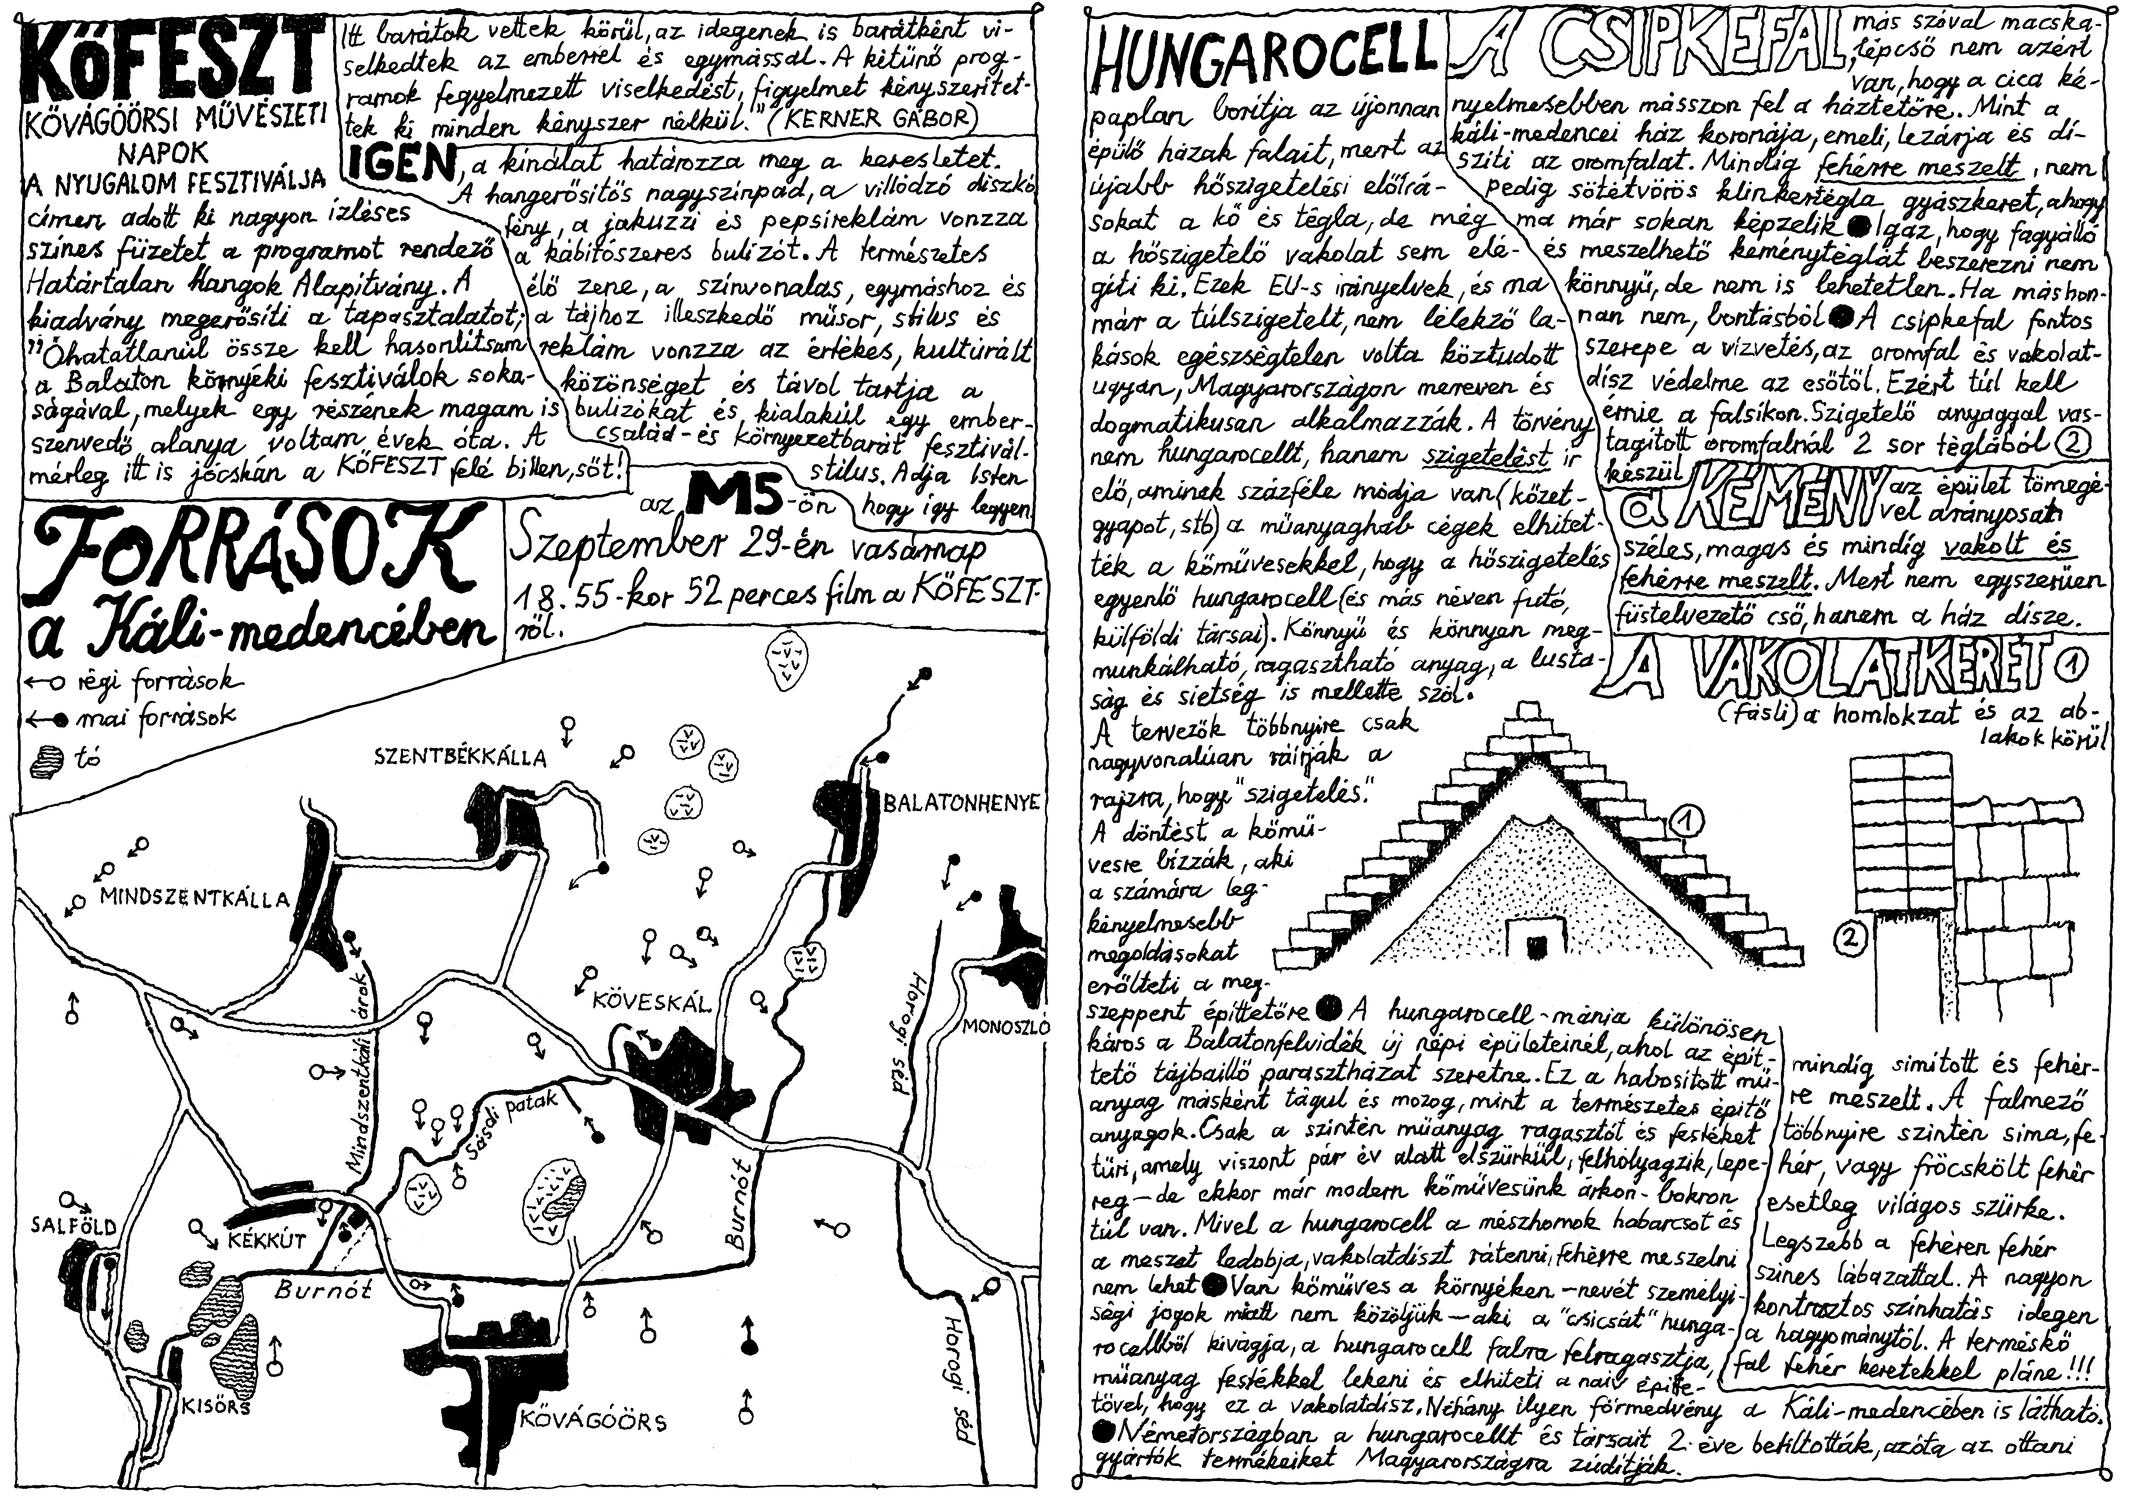 KŐFESZT
KŐVÁGÓÖRSI MŰVÉSZETI
NAPOK
A NYUGALOM FESZTIVÁLJA
címen adott ki nagyon ízléses
színes füzetet a programot rendező
Határtalan Hangok Alapítvány. A
kiadvány megerősíti a tapasztalatot;
"Óhatatlanúl össze kell hasonlítsam
a Balaton környéki fesztiválok soka-
ságával, melyek egy részének magam is
szenvedő alanya voltam évek óta. A
mérleg itt is jócskán a KŐFESZT felé billen, sőt!
Itt barátok vettek körül, az idegenek is barátként vi-
selkedtek az emberrel és egymással. A kitünő prog-
ramok fegyelmezett viselkedést, figyelmet kényszerítet-
tek ki minden kényszer nélkül." (KERNER GÁBOR)
IGEN, a kínálat határozza meg a keresletet.
A hangerősítős nagyszínpad, a villódzó diszkó
fény, a jakuzzi és pepsireklám vonzza
a kábítószeres bulizót. A természetes
élő zene, a színvonalas, egymáshoz és
a tájhoz illeszkedő műsor, stílus és
reklám vonzza az értékes, kultúrált
közönséget és távol tartja a
bulizókat és kialakúl egy ember-
család- és környezetbarát fesztivál-
stílus. Adja Isten
hogy így legyen
az M5-ön
Szeptember 29-én vasárnap
18.55-kor 52 perces film a KŐFESZT-
ről.
FORRÁSOK
a Káli-medencében
régi források
mai források
tó
SZENTBÉKKÁLLA
BALATONHENYE
MINDSZENTKÁLLA
KÖVESKÁL
MONOSZLÓ
Mindszentkáli árok
Sásdi patak
Horogi séd
Burnót
SALFÖLD
KÉKKÚT
Burnót
Horogi séd
KISÖRS
KŐVÁGÓÖRS
HUNGAROCELL
paplan borítja az újonnan
épülő házak falait, mert az
újabb hőszigetelési előírá-
sokat a kő és tégla, de még
a hőszigetelő vakolat sem elé-
gíti ki. Ezek EU-s irányelvek, és ma
már a túlszigetelt, nem lélekző la-
kások egészségtelen volta köztudott
ugyan, Magyarországon mereven és
dogmatikusan alkalmazzák. A törvény
nem hungarocellt, hanem szigetelést ír
elő, aminek százféle módja van (kőzet-
gyapot, stb) a műanyaghab cégek elhitet-
ték a kőművesekkel, hogy a hőszigetelés
egyenlő hungarocell (és más néven futó,
külföldi társai). Könnyű és könnyen meg-
munkálható, ragasztható anyag, a lusta-
ság és sietség is mellette szól.
A tervezők többnyire csak
nagyvonalúan ráírják a
rajzra, hogy "szigetelés."
A döntést a kőmű-
vesre bízzák, aki
a számára leg-
kényelmesebb
megoldásokat
erőlteti a meg-
szeppent építtetőre ● A hungarocell-mánia különösen
káros a Balatonfelvidék új népi épületeinél, ahol az épít-
tető tájbaillő parasztházat szeretne. Ez a habosított mű-
anyag másként tágul és mozog, mint a természetes építő
anyagok. Csak a szintén műanyag ragasztót és festéket
tűri, amely viszont pár év alatt elszürkül, felhólyagzik, lepe-
reg – de ekkor már modern kőművesünk árkon-bokron
túl van. Mivel a hungarocell a mészhomok habarcsot és
a meszet ledobja, vakolatdíszt rátenni, fehérre meszelni
nem lehet ● Van kőműves a környéken – nevét személyi-
ségi jogok miatt nem közöljük – aki a "csicsát" hunga-
rocellből kivágja, a hungarocell falra felragasztja,
műanyag festékkel lekeni és elhiteti a naiv építte-
tővel, hogy ez a vakolatdísz. Néhány ilyen förmedvény a Káli-medencében is látható.
● Németországban a hungarocellt és társait 2 éve betiltották, azóta az ottani
gyártók termékeiket Magyarországra zúdítják.
A CSIPKEFAL más szóval macska-
lépcső nem azért
van, hogy a cica ké-
nyelmesebben másszon fel a háztetőre. Mint a
káli-medencei ház koronája, emeli, lezárja és dí-
szíti az oromfalat. Mindíg fehérre meszelt, nem
pedig sötétvörös klinkertégla gyászkeret, ahogy
ma már sokan képzelik ● Igaz, hogy fagyálló
és meszelhető keménytéglát beszerezni nem
könnyű, de nem is lehetetlen. Ha máshon-
nan nem, bontásból ● A csipkefal fontos
szerepe a vízvetés, az oromfal és vakolat-
dísz védelme az esőtől. Ezért túl kell
érnie a falsíkon. Szigetelő anyaggal vas-
tagított oromfalnál 2 sor téglából ②
készül
a KÉMÉNY az épület tömegé-
vel arányosan
széles, magas és mindíg vakolt és
fehérre meszelt. Mert nem egyszerűen
füstelvezető cső, hanem a ház dísze.
A VAKOLATKERET ①
(fásli) a homlokzat és az ab-
lakok körül
①
②
mindíg simított és fehér-
re meszelt. A falmező
többnyire szintén sima, fe-
hér, vagy fröcskölt fehér
esetleg világos szürke.
Legszebb a fehéren fehér
színes lábazattal. A nagyon
kontrasztos színhatás idegen
a hagyománytól. A terméskő
fal fehér keretekkel pláne!!!